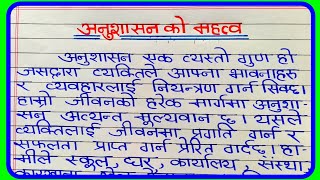 अनुशासन को महत्व
अनुशासन एक त्यस्तो गुण हो
जसद्वारा व्यक्तिले आफ्ना भावनाहरु
र व्यवहारलाई नियन्त्रण गर्न सिक्छ।
हाम्रो जीवनको हरेक मार्गमा अनुशा-
सन अत्यन्त मूल्यवान छ। यसले
व्यक्तिलाई जीवनमा प्रगति गर्न र
सफलता प्राप्त गर्न प्रेरित गर्दछ। हा-
मीले स्कूल, घर, कार्यालय, संस्था